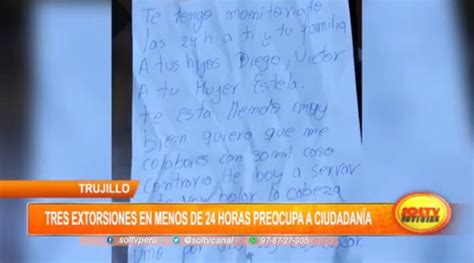 Te tengo monitoriato
las 24h a ti y tu familia
A tus hijos Diego, Victor
A tu Mujer Estela.
te esta llendo muy
bien quiero que me
colabores con 30 mil caso
Contrario te boy a serrar
bolar la cabeza
TRUJILLO
TRES EXTORSIONES EN MENOS DE 24 HORAS PREOCUPA A CIUDADANÍA
SOLTV
NOTICIAS
soltvperu @soltvcanal 97-87-27-305